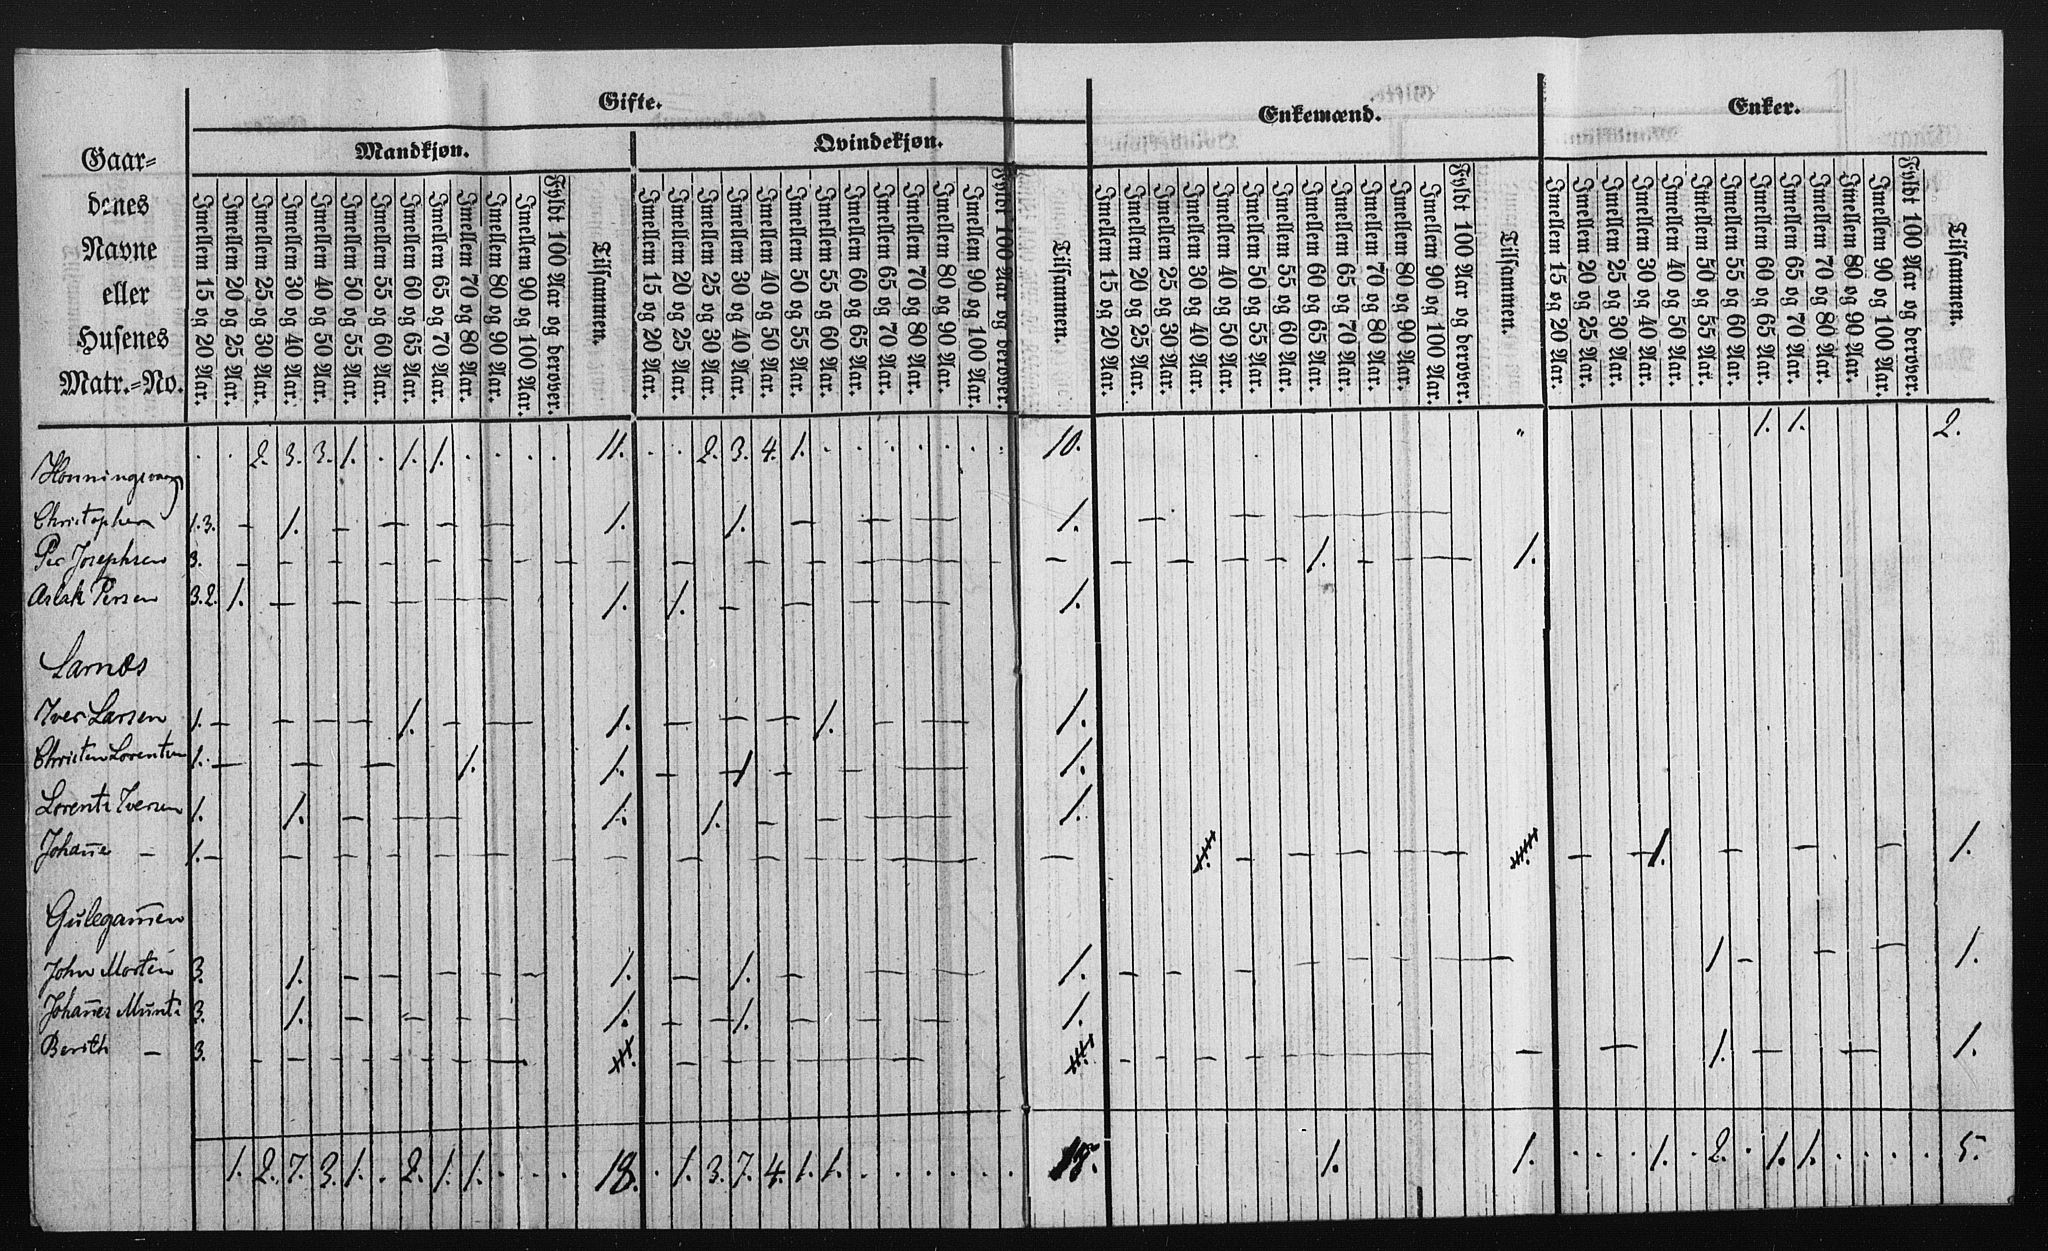 Gifte.
Enkemænd.
Enker.
Mandkjøn.
Qvindekjøn.
Gaar-
denes
Navne
eller
Husenes
Matr.-No.
Imellem 15 og 20 Aar.
Imellem 20 og 25 Aar.
Imellem 25 og 30 Aar.
Imellem 30 og 40 Aar.
Imellem 40 og 50 Aar.
Imellem 50 og 55 Aar.
Imellem 55 og 60 Aar.
Imellem 60 og 65 Aar.
Imellem 65 og 70 Aar.
Imellem 70 og 80 Aar.
Imellem 80 og 90 Aar.
Imellem 90 og 100 Aar.
Fyldt 100 Aar og derover.
Tilsammen.
Imellem 15 og 20 Aar.
Imellem 20 og 25 Aar.
Imellem 25 og 30 Aar.
Imellem 30 og 40 Aar.
Imellem 40 og 50 Aar.
Imellem 50 og 55 Aar.
Imellem 55 og 60 Aar.
Imellem 60 og 65 Aar.
Imellem 65 og 70 Aar.
Imellem 70 og 80 Aar.
Imellem 80 og 90 Aar.
Imellem 90 og 100 Aar.
Fyldt 100 Aar og derover.
Tilsammen.
Imellem 15 og 20 Aar.
Imellem 20 og 25 Aar.
Imellem 25 og 30 Aar.
Imellem 30 og 40 Aar.
Imellem 40 og 50 Aar.
Imellem 50 og 55 Aar.
Imellem 55 og 60 Aar.
Imellem 60 og 65 Aar.
Imellem 65 og 70 Aar.
Imellem 70 og 80 Aar.
Imellem 80 og 90 Aar.
Imellem 90 og 100 Aar.
Fyldt 100 Aar og derover.
Tilsammen.
Imellem 15 og 20 Aar.
Imellem 20 og 25 Aar.
Imellem 25 og 30 Aar.
Imellem 30 og 40 Aar.
Imellem 40 og 50 Aar.
Imellem 50 og 55 Aar.
Imellem 55 og 60 Aar.
Imellem 60 og 65 Aar.
Imellem 65 og 70 Aar.
Imellem 70 og 80 Aar.
Imellem 80 og 90 Aar.
Imellem 90 og 100 Aar.
Fyldt 100 Aar og derover.
Tilsammen.
Honningsvaag . . 2. 3. 3. 1. . 1. 1. . . . . 11. . . 2. 3. 4. 1. . . . . . . . 10. " 1. 1. 2.
Christophersen 1.3. — 1. — — — — 1. 1. — — — 1. — — —
Per Josephsen 3. — — — — — — — — — — — — — — — — — — — — — — 1. — — — 1.
Aslak Persen 3.2. 1. — — — — — 1. 1. — — — — 1.
Sarnes
Iver Larsen 1. — — — — 1. — — 1. — — — 1. — — 1.
Christen Lorentsen 1. — — — 1. 1. — 1 — — — 1.
Lorents Iversen 1. 1. — — — 1. 1. — — — — 1.
Johañe — 1. — — — — — — — — — — — — — — — — — — — — — — — — — 1. — — — 1.
Gulegam̄en
John Morten 3. 1. — — — — — — 1. — 1. — — — — 1. — — — — — — 1 — — — 1.
Johañes Munts 3. 1. — — — — — 1. — — 1. — — — — 1.
Berith — 3. — — — — — — — — — — — — — — — — — — — — — — — 1. — — 1.
1. 2. 7. 3. 1. . 2. 1. 1. . . . 18. . 1. 3. 7. 4. 1. 1. . . . . . . 18. 1. 1. . . . 1. . 2. . 1. 1. . . . . 5.